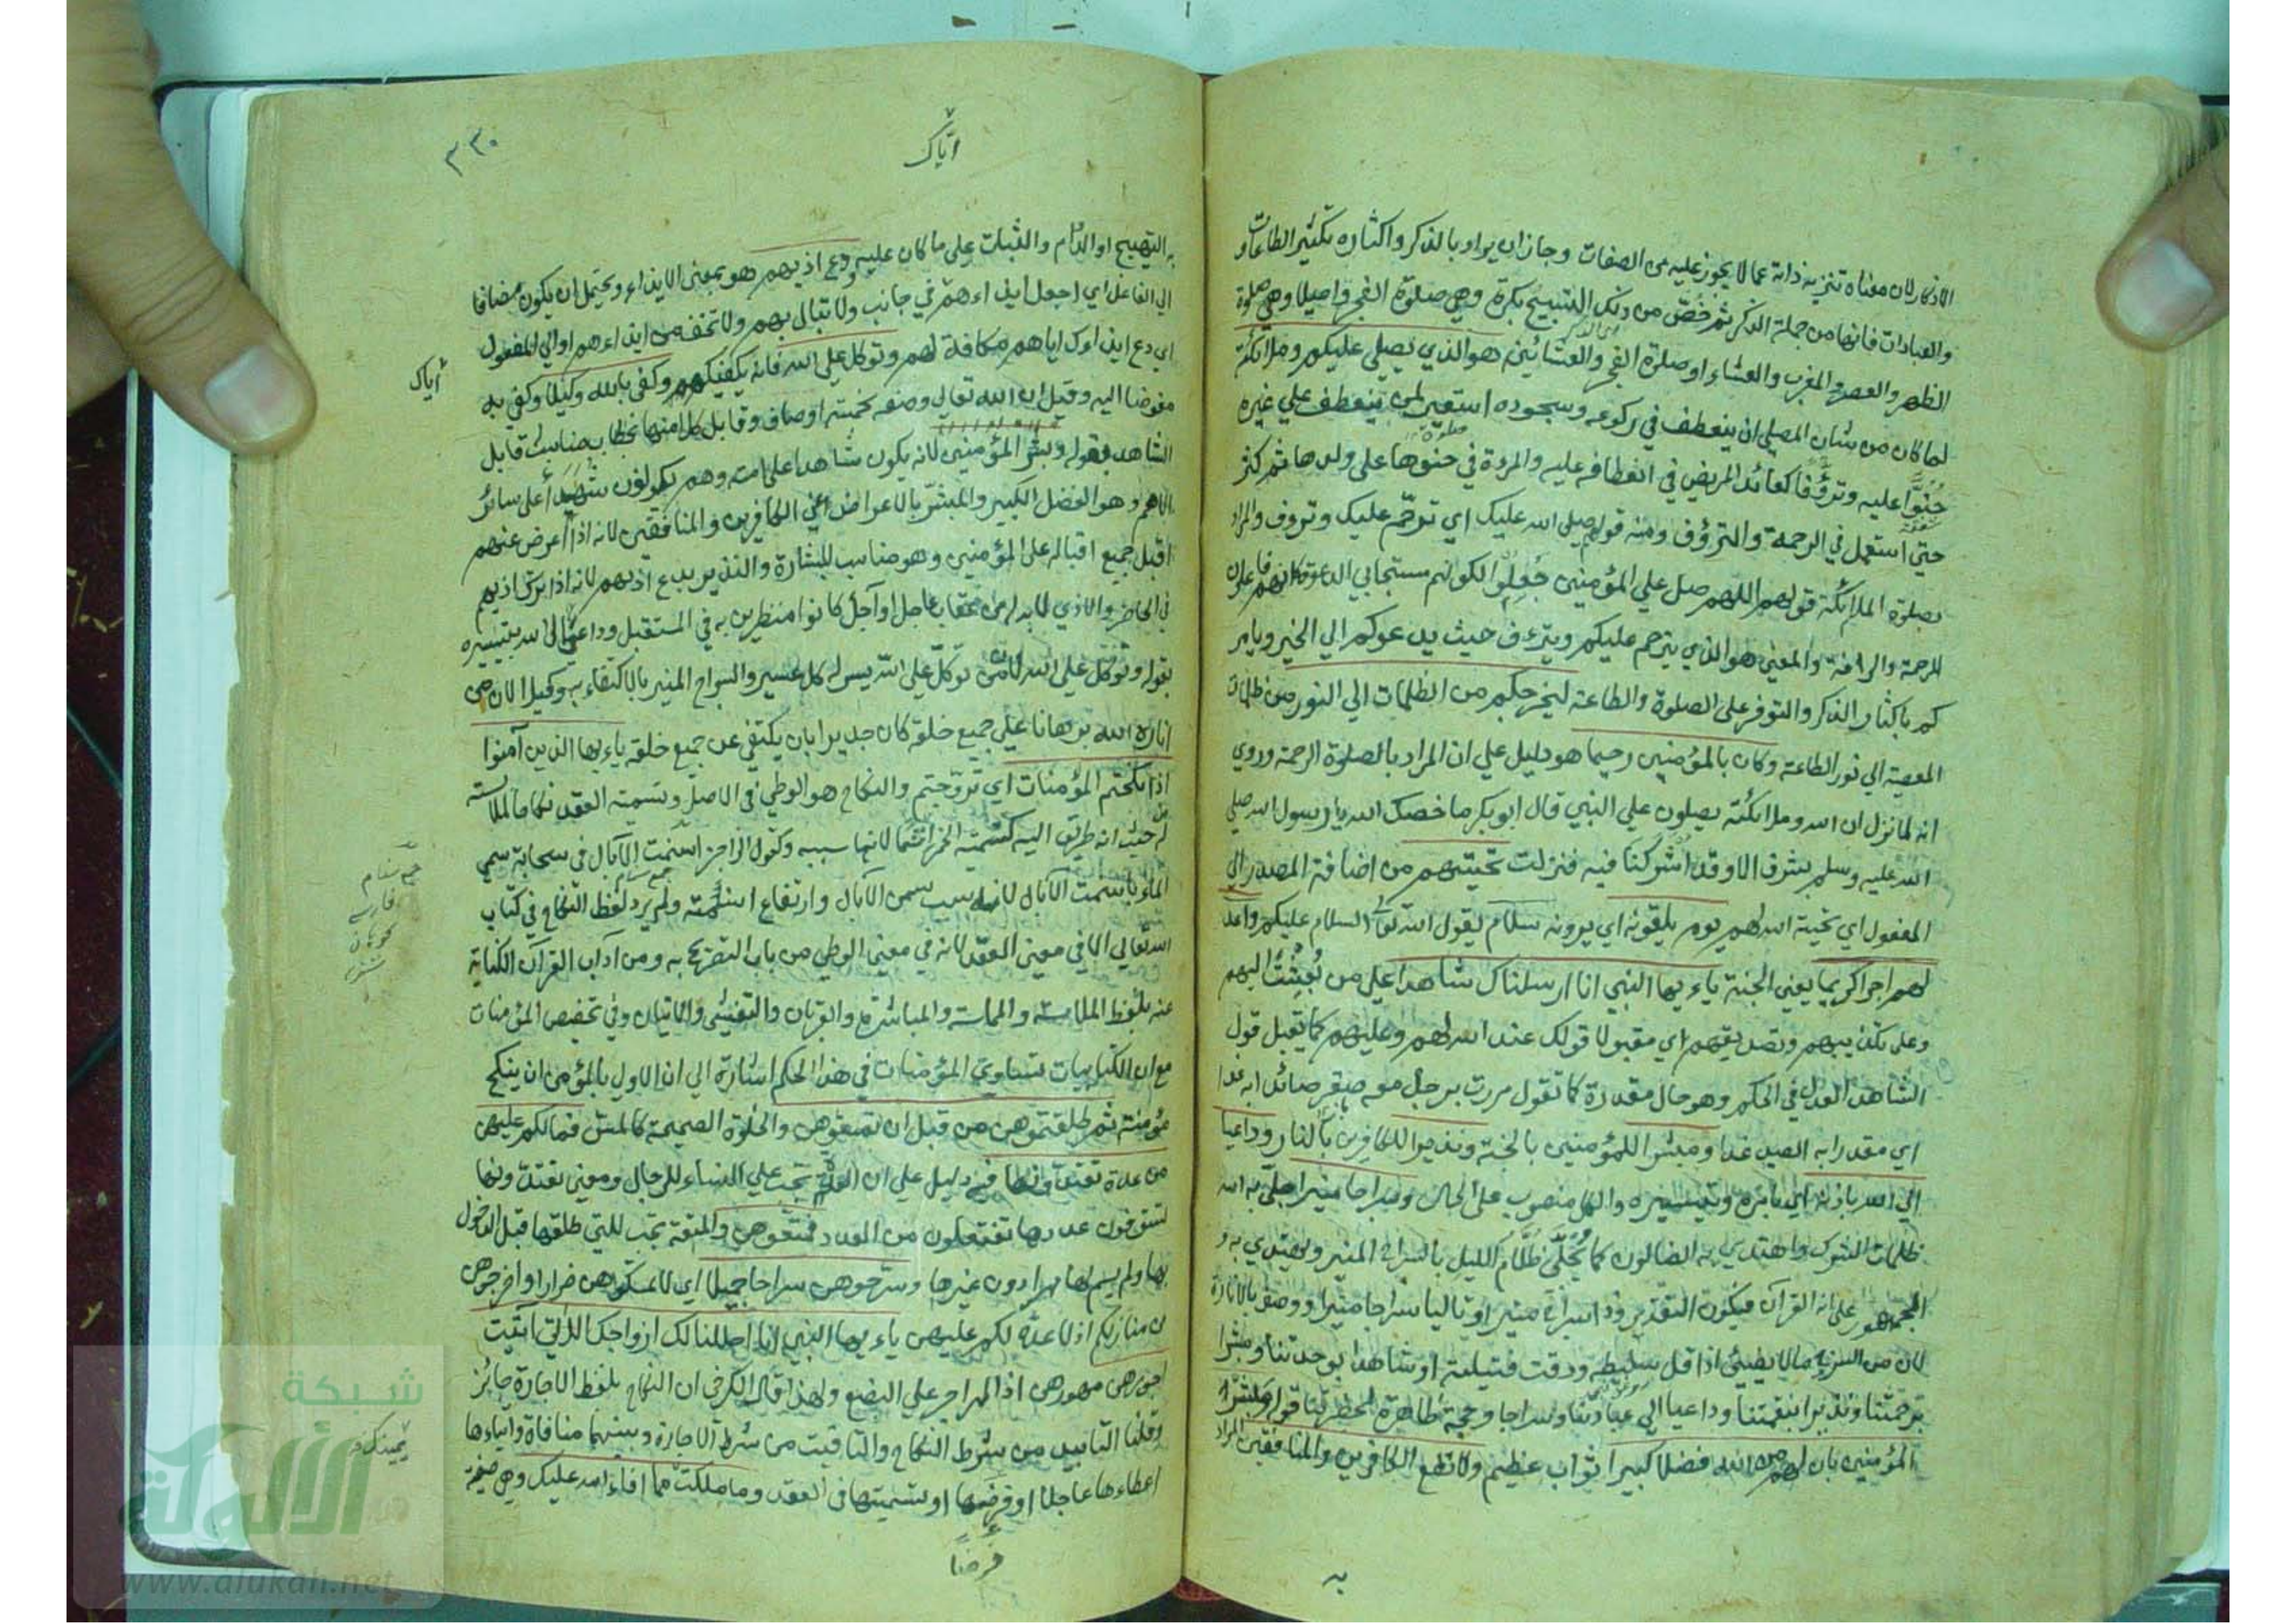 الاذكار لان معناه تنزيه ذاته عما لا يجوز عليه من الصفات وجاز ان يراد بالذكر واكثاره تكثير الطاعات و
والعبادات فانها من جملة الذكر ثم خص من ذلك التسبيح بكرة وهي صلوة الفجر واصيلا وهي صلوة
الظهر والعصر والمغرب والعشاء او صلوة الفجر والعشائين هو الذي يصلي عليكم وملائكته
لما كان من شان المصلي ان ينعطف في ركوعه وسجوده استعير لمن ينعطف علي غيره
حنوّا عليه وترؤّفا كعائد المريض في انعطافه عليه والمرءة في حنوها علي ولدها ثم كثر
حتي استعمل في الرحمة والترؤف ومنه قولهم صلي الله عليك اي ترحّم عليك وتروف والمراد
بصلوة الملائكة قولهم اللهم صل علي المؤمنين جُعِلُوا لكونهم مستجابي الدعوة كانهم فاعلون
الرحمة والرافة والمعني هو الذي يترحم عليكم ويترءف حيث يدعوكم الي الخير ويامر
كم باكثار الذكر والتوفر علي الصلوة والطاعة ليخرجكم من الظلمات الي النور من ظلمات
المعصية الي نور الطاعة وكان بالمؤمنين رحيما هو دليل علي ان المراد بالصلوة الرحمة وروي
انه لما نزل ان الله وملائكته يصلون علي النبي قال ابو بكر ما خصك الله يا رسول الله صلي
الله عليه وسلم بشرف الا وقد اشركنا فيه فنزلت تحيتهم من اضافة المصدر الي
المفعول اي تحية الله لهم يوم يلقونه اي يرونه سلام يقول الله تعالي السلام عليكم واعد
لهم اجرا كريما يعني الجنة ياءيها النبي انا ارسلناك شاهدا علي من بُعِثْتَ اليهم
وعلي تكذيبهم وتصديقهم اي مقبولا قولك عند الله لهم وعليهم كما يقبل قول
الشاهد العدل في الحكم وهو حال مقدرة كما تقول مررت برجل معه صقر صائدا به غدا
اي مقدرا به الصيد غدا ومبشرا للمؤمنين بالجنة ونذيرا للكافرين بالنار وداعيا
الي الله باذنه اي بامره وتيسيره والكل منصوب علي الحال وسراجا منيرا جلّي به الله
ظلمات الشرك واهتدي به الضالون كما يُجَلّي ظلام الليل بالسراج المنير ويهتدي به و
الجمهور علي انه القرآن فيكون التقدير وذا سراج منير او تاليا سراجا منيرا ووصف بالانارة
لان من السرج ما لا يضيئ اذا قل سليطه ودقت فتيلته او شاهدا بوحدتنا ومبشرا
برحمتنا ونذيرا بنقمتنا وداعيا الي عبادتنا وسراجا وحجة ظاهرة لحضرتنا وبشر
المؤمنين بان لهم من الله فضلا كبيرا ثواب عظيم ولا تطع الكافرين والمنافقين المراد
به
٣٣٠
ايّاك
به التهييج او الدوام والثبات علي ما كان عليه ودع اذيهم هو بمعني الايذاء ويحتمل ان يكون مضافا
الي الفاعل اي اجعل ايذاءهم في جانب ولا تبال بهم ولا تخف من ايذاءهم او الي المفعول
اي دع ايذاءك اياهم مكافاة لهم وتوكل علي الله فانه يكفيكهم وكفي بالله وكيلا وكفي به
اياك
مفوضا اليه وقيل ان الله تعالي وصفه بخمسة اوصاف وقابل كلا منها بخطاب مناسب قابل
الشاهد بقوله وبشر المؤمنين لانه يكون شاهدا علي امته وهم يكونون شهداء علي سائر
الامم وهو الفضل الكبير والمبشر بالاعراض عن الكافرين والمنافقين لانه اذا اعرض عنهم
اقبل جميع اقباله علي المؤمنين وهو مناسب للبشارة والنذير بدع اذيهم لانه اذا ترك اذيهم
في الحاضر والاذي لا بد له من عقاب عاجل او آجل كانوا منذرين به في المستقبل وداعيا الي الله بتيسيره
بقوله وتوكل علي الله لان من توكل علي الله يسر له كل عسير والسراج المنير بالاكتفاء به وكيلا لان من
اناره الله برهانا علي جميع خلقه كان جديرا بان يكتفي عن جميع خلقه ياءيها الذين آمنوا
اذا نكحتم المؤمنات اي تزوجتم والنكاح هو الوطي في الاصل وتسمية العقد نكاحا لملابسته
له من حيث انه طريق اليه كتسمية الخمر اثما لانها سببه وكقول الراجز اسنمت الآبال في سحابة سمي
الماء باسنمت الآبال لانه سبب سمن الآبال وارتفاع اسنمته ولم يرد لفظ النكاح في كتاب
جمع سنام
فارسي
كوهان
شتر
الله تعالي الا في معني العقد لانه في معني الوطي من باب التصريح به ومن آداب القرآن الكناية
عنه بلفظ الملامسة والمماسة والمباشرة والقربان والتغشي والاتيان وفي تخصيص المؤمنات
مع ان الكتابيات تساوي المؤمنات في هذا الحكم اشارة الي ان الاولي بالمؤمن ان ينكح
مؤمنة ثم طلقتموهن من قبل ان تمسوهن والخلوة الصحيحة كالمس فما لكم عليهن
من عدة تعتدونها فيه دليل علي ان العدة تجب علي النساء للرجال ومعني تعتدونها
تستوفون عددها تفتعلون من العدد فمتعوهن والمتعة تجب للتي طلقها قبل الدخول
بها ولم يسم لها مهرا دون غيرها وسرحوهن سراحا جميلا اي لا تمسكوهن ضرارا واخرجوهن
من منازلكم اذ لا عدة لكم عليهن ياءيها النبي انا احللنا لك ازواجك اللاتي آتيت
اجورهن مهورهن اذ المهر اجر علي البضع ولهذا قال الكرخي ان النكاح بلفظ الاجارة جائز
وقلنا التابيد من شرط النكاح والتاقيت من شرط الاجارة وبينهما منافاة وايتاءها
اعطاءها عاجلا او فرضها او تسميتها في العقد وما ملكت مما افاء الله عليك وهي صفية
يمينك
فرضا
شبكة
الألوكة
www.alukah.net